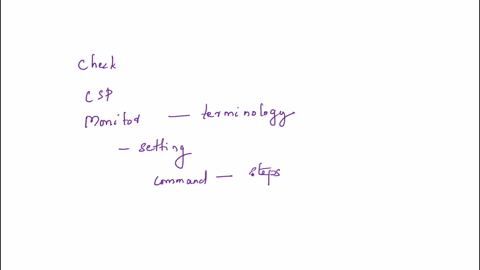 Check
CSP
Monitor — terminology
- setting
command — steps